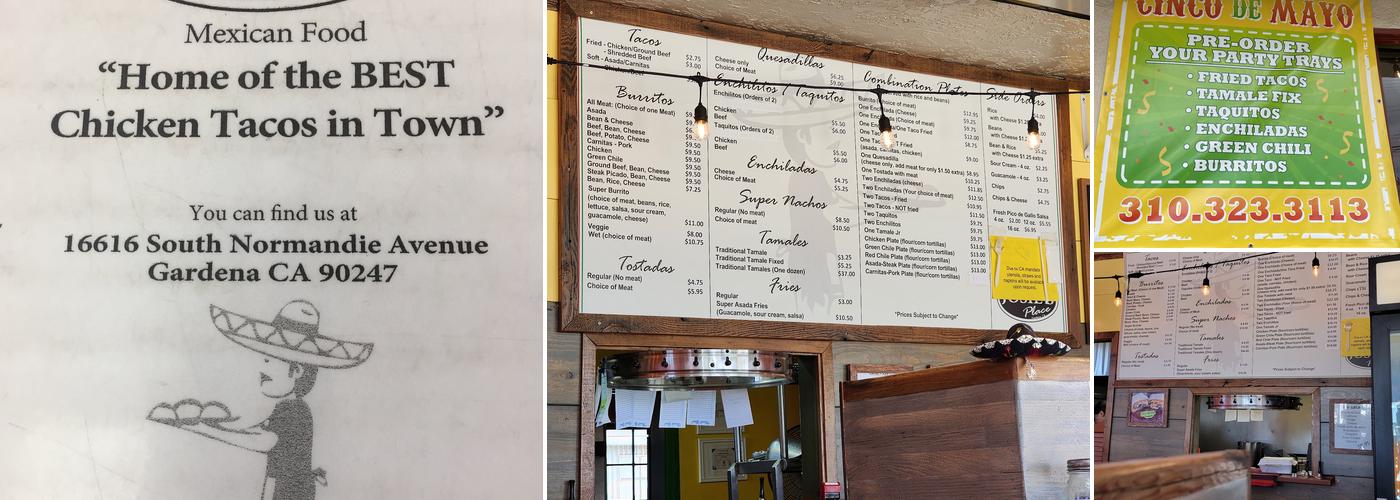 Mexican Food
“Home of the BEST
Chicken Tacos in Town”
You can find us at
16616 South Normandie Avenue
Gardena CA 90247
Tacos
Fried - Chicken/Ground Beef $2.75
- Shredded Beef $3.00
Soft - Asada/Carnitas
Burritos
All Meat: (Choice of one Meat)
Asada
Bean & Cheese
Bean, Cheese
Beef, Bean, Cheese
Beef, Potato, Cheese
Carnitas - Pork $9.50
Chicken $9.50
Green Chile $9.50
Ground Beef, Bean, Cheese $9.50
Steak Picado, Bean, Cheese $9.50
Bean, Rice, Cheese $7.25
Super Burrito
(choice of meat, beans, rice,
lettuce, salsa, sour cream,
guacamole, cheese) $11.00
Veggie $8.00
Wet (choice of meat) $10.75
Tostadas
Regular (No meat) $4.75
Choice of Meat $5.95
Quesadillas
Cheese only $6.25
Choice of Meat $9.00
Enchilitos / Taquitos
Enchilitos (Orders of 2)
Chicken $5.50
Beef $6.00
Taquitos (Orders of 2)
Chicken $5.50
Beef $6.00
Enchiladas
Cheese $4.75
Choice of Meat $5.25
Super Nachos
Regular (No meat) $8.50
Choice of meat $10.50
Tamales
Traditional Tamale $3.25
Traditional Tamale Fixed $5.25
Traditional Tamales (One dozen) $37.00
Fries
Regular $3.00
Super Asada Fries
(Guacamole, sour cream, salsa) $10.50
Combination Plates
with rice and beans)
Burrito (choice of meat) $12.95
One Enchilada (Cheese) $9.25
One Enchilada (Choice of meat) $9.75
One Enchilada/One Taco Fried
One Taco
(asada, carnitas, chicken)
One Quesadilla $9.00
(cheese only, add meat for only $1.50 extra)
One Tostada with meat $8.95
Two Enchiladas (cheese) $10.25
Two Enchiladas (Your choice of meat) $11.85
Two Tacos - Fried $12.50
Two Tacos - NOT fried $10.95
Two Taquitos $11.50
Two Enchilitos
One Tamale Jr
Chicken Plate (flour/corn tortillas) $13.00
Green Chile Plate (flour/corn tortillas) $13.00
Red Chile Plate (flour/corn tortillas) $13.00
Asada-Steak Plate (flour/corn tortillas) $13.00
Carnitas-Pork Plate (flour/corn tortillas) $13.00
*Prices Subject to Change*
Side Orders
Rice
Beans
with Cheese $1.25 extra
Bean & Rice
with Cheese $1.25 extra
Sour Cream - 4 oz. $2.25
Guacamole - 4 oz. $3.25
Chips $2.75
Chips & Cheese $4.75
Fresh Pico de Gallo Salsa
4 oz. $2.00 12 oz. $5.55
16 oz. $6.95
Due to CA mandate
utensils, straws and
napkins will be available
upon request.
Place
CINCO DE MAYO
PRE-ORDER
YOUR PARTY TRAYS
• FRIED TACOS
• TAMALE FIX
• TAQUITOS
• ENCHILADAS
• GREEN CHILI
• BURRITOS
310.323.3113
Tacos
Burritos
Tostadas
Enchiladas
Super Nachos
Tamales
Fries
*Prices Subject to Change*